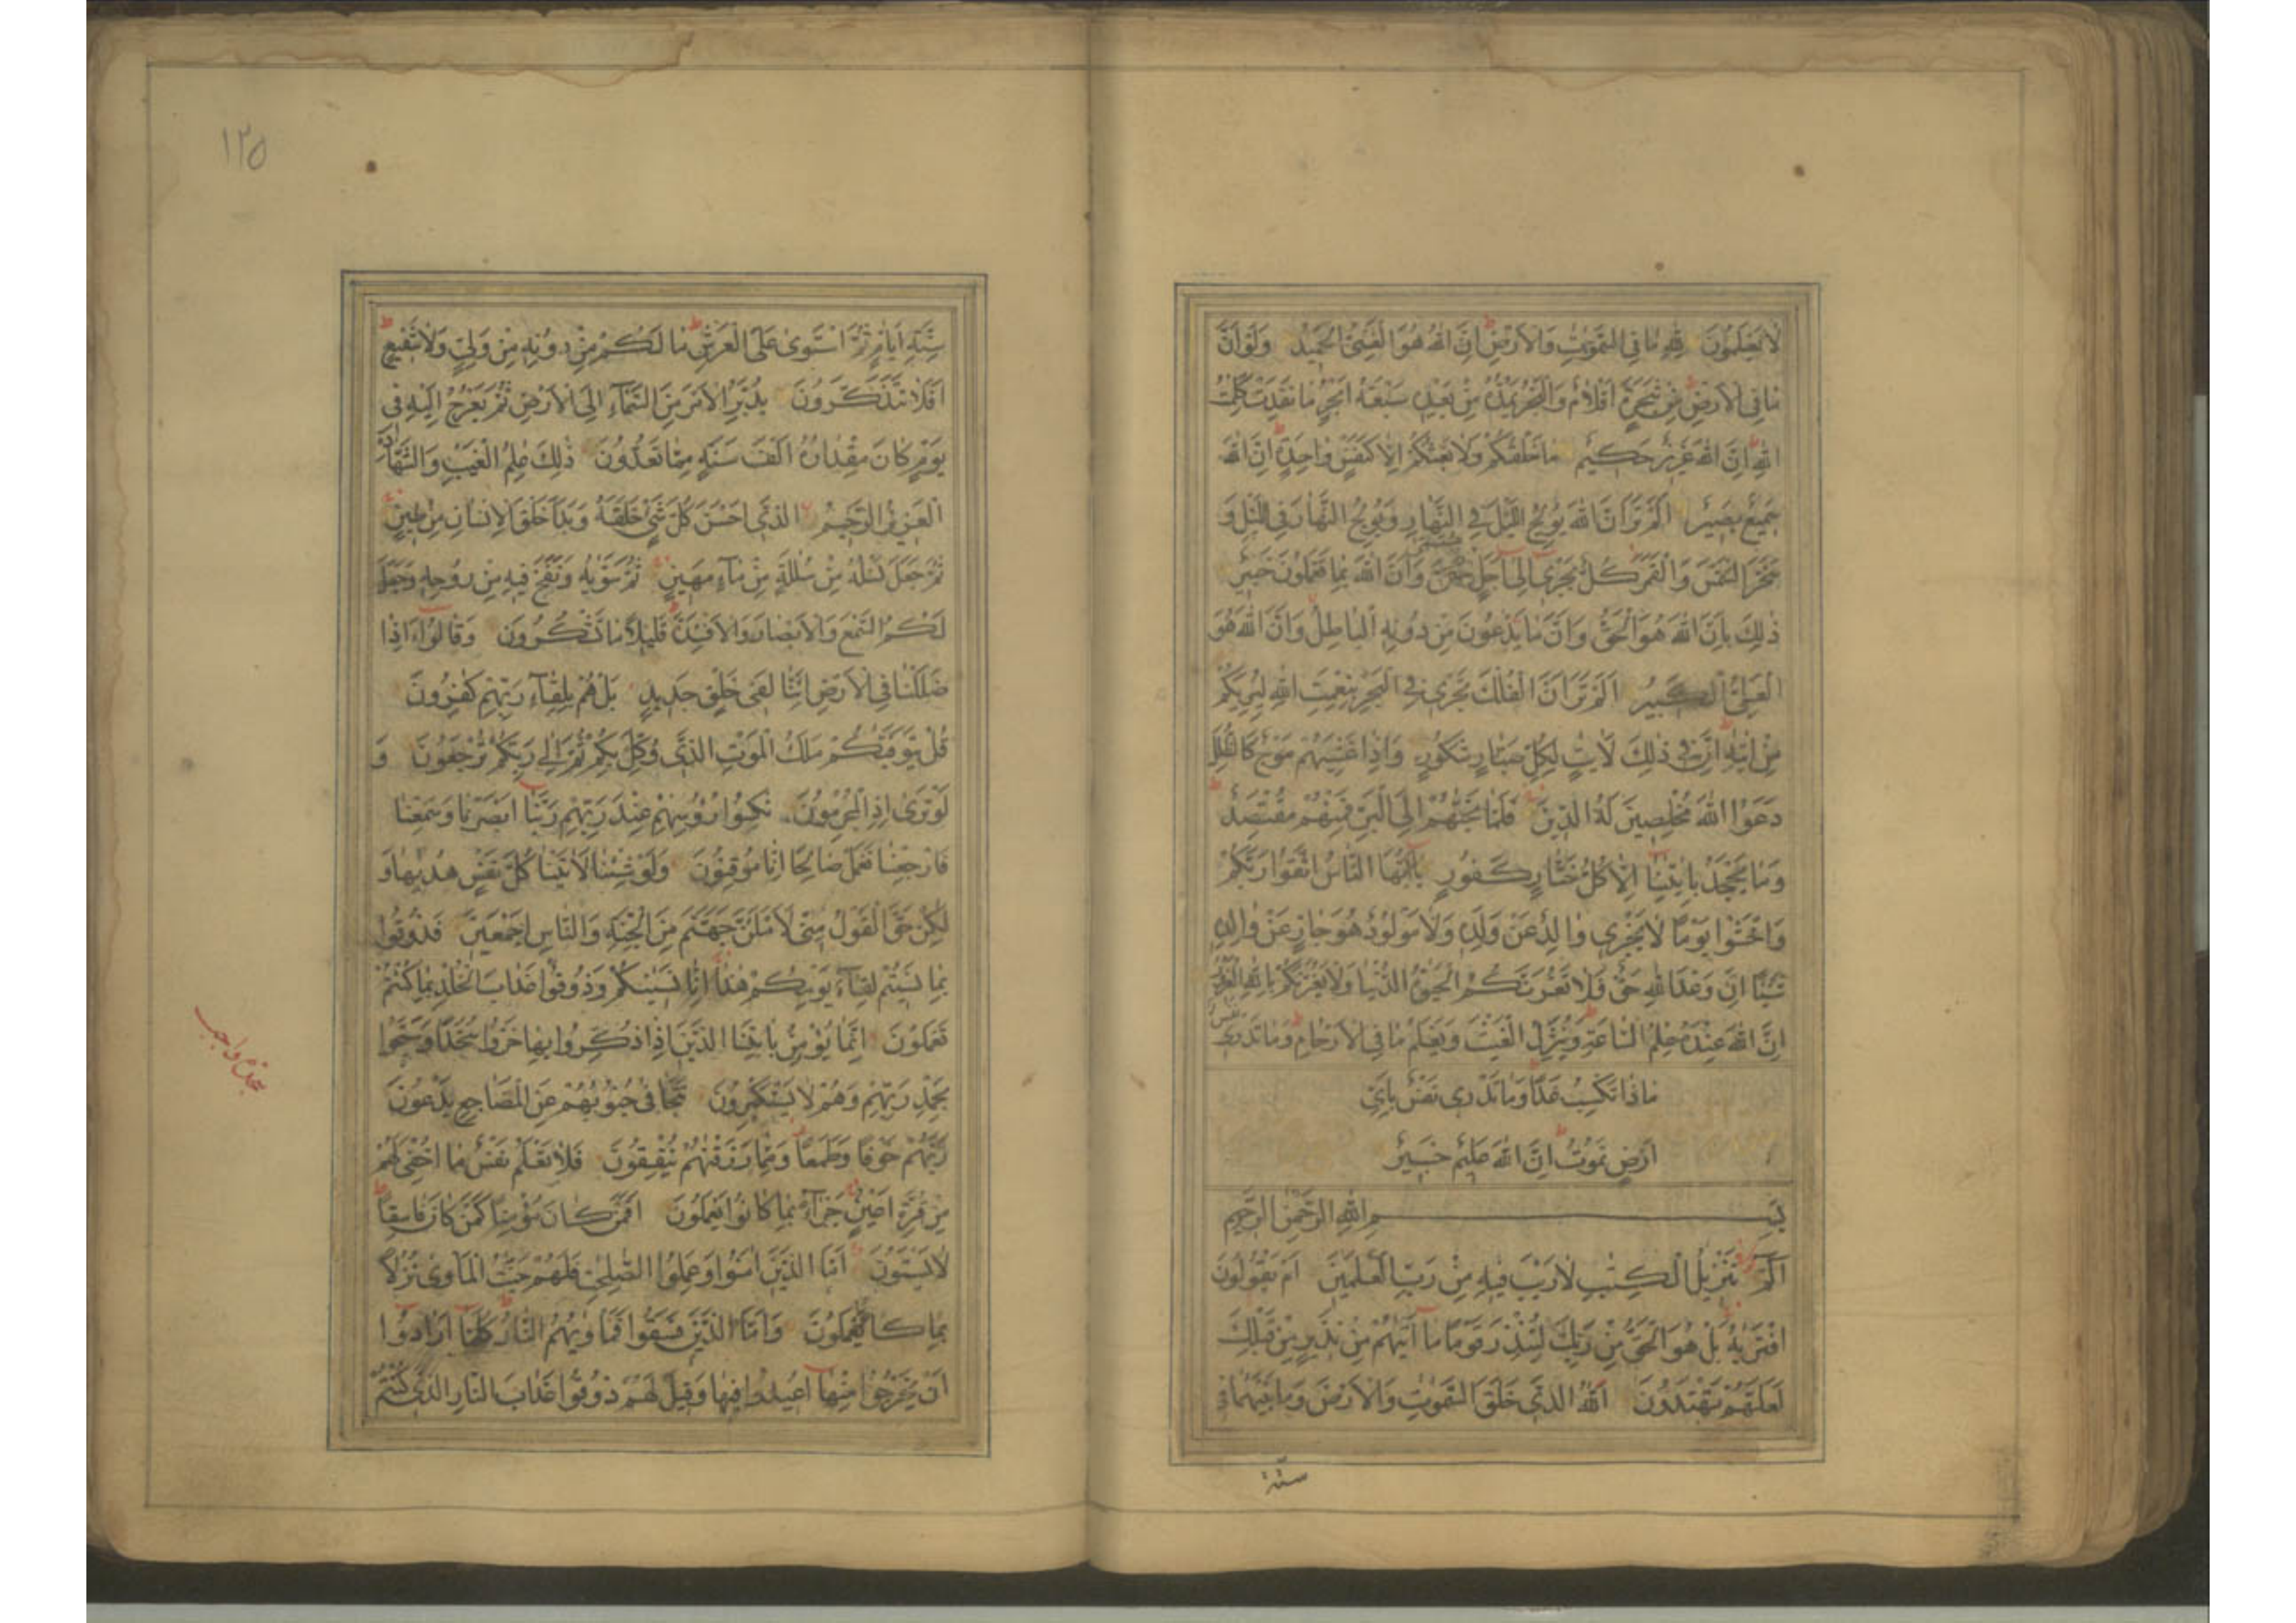 لَا يَعْلَمُونَ لِلّٰهِ مَا فِي السَّمٰوٰتِ وَالْاَرْضِ اِنَّ اللّٰهَ هُوَ الْغَنِىُّ الْحَمِيْدُ وَلَوْ اَنَّ
مَا فِي الْاَرْضِ مِنْ شَجَرَةٍ اَقْلَامٌ وَالْبَحْرُ يَمُدُّهُ مِنْ بَعْدِهِ سَبْعَةُ اَبْحُرٍ مَا نَفِدَتْ كَلِمٰتُ
اللّٰهِ اِنَّ اللّٰهَ عَزِيْزٌ حَكِيْمٌ مَا خَلْقُكُمْ وَلَا بَعْثُكُمْ اِلَّا كَنَفْسٍ وَاحِدَةٍ اِنَّ اللّٰهَ
سَمِيْعٌ بَصِيْرٌ اَلَمْ تَرَ اَنَّ اللّٰهَ يُوْلِجُ اللَّيْلَ فِي النَّهَارِ وَيُوْلِجُ النَّهَارَ فِي اللَّيْلِ وَ
سَخَّرَ الشَّمْسَ وَالْقَمَرَ كُلٌّ يَجْرِي اِلٰى اَجَلٍ مُسَمًّى وَاَنَّ اللّٰهَ بِمَا تَعْمَلُوْنَ خَبِيْرٌ
ذٰلِكَ بِاَنَّ اللّٰهَ هُوَ الْحَقُّ وَاَنَّ مَا يَدْعُوْنَ مِنْ دُوْنِهِ الْبَاطِلُ وَاَنَّ اللّٰهَ هُوَ
الْعَلِىُّ الْكَبِيْرُ اَلَمْ تَرَ اَنَّ الْفُلْكَ تَجْرِي فِي الْبَحْرِ بِنِعْمَتِ اللّٰهِ لِيُرِيَكُمْ
مِنْ اٰيٰتِهِ اِنَّ فِي ذٰلِكَ لَاٰيٰتٍ لِكُلِّ صَبَّارٍ شَكُوْرٍ وَاِذَا غَشِيَهُمْ مَوْجٌ كَالظُّلَلِ
دَعَوُا اللّٰهَ مُخْلِصِيْنَ لَهُ الدِّيْنَ فَلَمَّا نَجّٰهُمْ اِلَى الْبَرِّ فَمِنْهُمْ مُقْتَصِدٌ
وَمَا يَجْحَدُ بِاٰيٰتِنَا اِلَّا كُلُّ خَتَّارٍ كَفُوْرٍ يَا اَيُّهَا النَّاسُ اتَّقُوْا رَبَّكُمْ
وَاخْشَوْا يَوْمًا لَا يَجْزِي وَالِدٌ عَنْ وَلَدِهِ وَلَا مَوْلُوْدٌ هُوَ جَازٍ عَنْ وَالِدِهِ
شَيْئًا اِنَّ وَعْدَ اللّٰهِ حَقٌّ فَلَا تَغُرَّنَّكُمُ الْحَيٰوةُ الدُّنْيَا وَلَا يَغُرَّنَّكُمْ بِاللّٰهِ الْغَرُوْرُ
اِنَّ اللّٰهَ عِنْدَهُ عِلْمُ السَّاعَةِ وَيُنَزِّلُ الْغَيْثَ وَيَعْلَمُ مَا فِي الْاَرْحَامِ وَمَا تَدْرِي نَفْسٌ
مَاذَا تَكْسِبُ غَدًا وَمَا تَدْرِي نَفْسٌ بِاَىِّ
اَرْضٍ تَمُوْتُ اِنَّ اللّٰهَ عَلِيْمٌ خَبِيْرٌ
بِسْمِ اللّٰهِ الرَّحْمٰنِ الرَّحِيْمِ
الٓمٓ تَنْزِيْلُ الْكِتٰبِ لَا رَيْبَ فِيْهِ مِنْ رَبِّ الْعٰلَمِيْنَ اَمْ يَقُوْلُوْنَ
افْتَرٰيهُ بَلْ هُوَ الْحَقُّ مِنْ رَبِّكَ لِتُنْذِرَ قَوْمًا مَا اَتٰيهُمْ مِنْ نَذِيْرٍ مِنْ قَبْلِكَ
لَعَلَّهُمْ يَهْتَدُوْنَ اَللّٰهُ الَّذِي خَلَقَ السَّمٰوٰتِ وَالْاَرْضَ وَمَا بَيْنَهُمَا فِي
ستّة
١٣٥
سِتَّةِ اَيَّامٍ ثُمَّ اسْتَوٰى عَلَى الْعَرْشِ مَا لَكُمْ مِنْ دُوْنِهِ مِنْ وَلِىٍّ وَلَا شَفِيْعٍ
اَفَلَا تَتَذَكَّرُوْنَ يُدَبِّرُ الْاَمْرَ مِنَ السَّمَآءِ اِلَى الْاَرْضِ ثُمَّ يَعْرُجُ اِلَيْهِ فِي
يَوْمٍ كَانَ مِقْدَارُهُ اَلْفَ سَنَةٍ مِمَّا تَعُدُّوْنَ ذٰلِكَ عٰلِمُ الْغَيْبِ وَالشَّهَادَةِ
الْعَزِيْزُ الرَّحِيْمُ الَّذِي اَحْسَنَ كُلَّ شَىْءٍ خَلَقَهُ وَبَدَاَ خَلْقَ الْاِنْسَانِ مِنْ طِيْنٍ
ثُمَّ جَعَلَ نَسْلَهُ مِنْ سُلٰلَةٍ مِنْ مَآءٍ مَهِيْنٍ ثُمَّ سَوّٰيهُ وَنَفَخَ فِيْهِ مِنْ رُوْحِهِ وَجَعَلَ
لَكُمُ السَّمْعَ وَالْاَبْصَارَ وَالْاَفْئِدَةَ قَلِيْلًا مَا تَشْكُرُوْنَ وَقَالُوْا ءَاِذَا
ضَلَلْنَا فِي الْاَرْضِ ءَاِنَّا لَفِي خَلْقٍ جَدِيْدٍ بَلْ هُمْ بِلِقَآءِ رَبِّهِمْ كٰفِرُوْنَ
قُلْ يَتَوَفّٰيكُمْ مَلَكُ الْمَوْتِ الَّذِي وُكِّلَ بِكُمْ ثُمَّ اِلٰى رَبِّكُمْ تُرْجَعُوْنَ وَ
لَوْ تَرٰى اِذِ الْمُجْرِمُوْنَ نَاكِسُوْا رُؤُسِهِمْ عِنْدَ رَبِّهِمْ رَبَّنَا اَبْصَرْنَا وَسَمِعْنَا
فَارْجِعْنَا نَعْمَلْ صَالِحًا اِنَّا مُوْقِنُوْنَ وَلَوْ شِئْنَا لَاٰتَيْنَا كُلَّ نَفْسٍ هُدٰيهَا وَ
لٰكِنْ حَقَّ الْقَوْلُ مِنِّي لَاَمْلَئَنَّ جَهَنَّمَ مِنَ الْجِنَّةِ وَالنَّاسِ اَجْمَعِيْنَ فَذُوْقُوْا
بِمَا نَسِيْتُمْ لِقَآءَ يَوْمِكُمْ هٰذَا اِنَّا نَسِيْنٰكُمْ وَذُوْقُوْا عَذَابَ الْخُلْدِ بِمَا كُنْتُمْ
تَعْمَلُوْنَ اِنَّمَا يُؤْمِنُ بِاٰيٰتِنَا الَّذِيْنَ اِذَا ذُكِّرُوْا بِهَا خَرُّوْا سُجَّدًا وَسَبَّحُوْا
بِحَمْدِ رَبِّهِمْ وَهُمْ لَا يَسْتَكْبِرُوْنَ تَتَجَافٰى جُنُوْبُهُمْ عَنِ الْمَضَاجِعِ يَدْعُوْنَ
رَبَّهُمْ خَوْفًا وَطَمَعًا وَمِمَّا رَزَقْنٰهُمْ يُنْفِقُوْنَ فَلَا تَعْلَمُ نَفْسٌ مَا اُخْفِيَ لَهُمْ
مِنْ قُرَّةِ اَعْيُنٍ جَزَآءً بِمَا كَانُوْا يَعْمَلُوْنَ اَفَمَنْ كَانَ مُؤْمِنًا كَمَنْ كَانَ فَاسِقًا
لَا يَسْتَوُوْنَ اَمَّا الَّذِيْنَ اٰمَنُوْا وَعَمِلُوا الصّٰلِحٰتِ فَلَهُمْ جَنّٰتُ الْمَاْوٰى نُزُلًا
بِمَا كَانُوْا يَعْمَلُوْنَ وَاَمَّا الَّذِيْنَ فَسَقُوْا فَمَاْوٰيهُمُ النَّارُ كُلَّمَا اَرَادُوْا
اَنْ يَخْرُجُوْا مِنْهَا اُعِيْدُوْا فِيْهَا وَقِيْلَ لَهُمْ ذُوْقُوْا عَذَابَ النَّارِ الَّذِي كُنْتُمْ
سجدۀ واجب